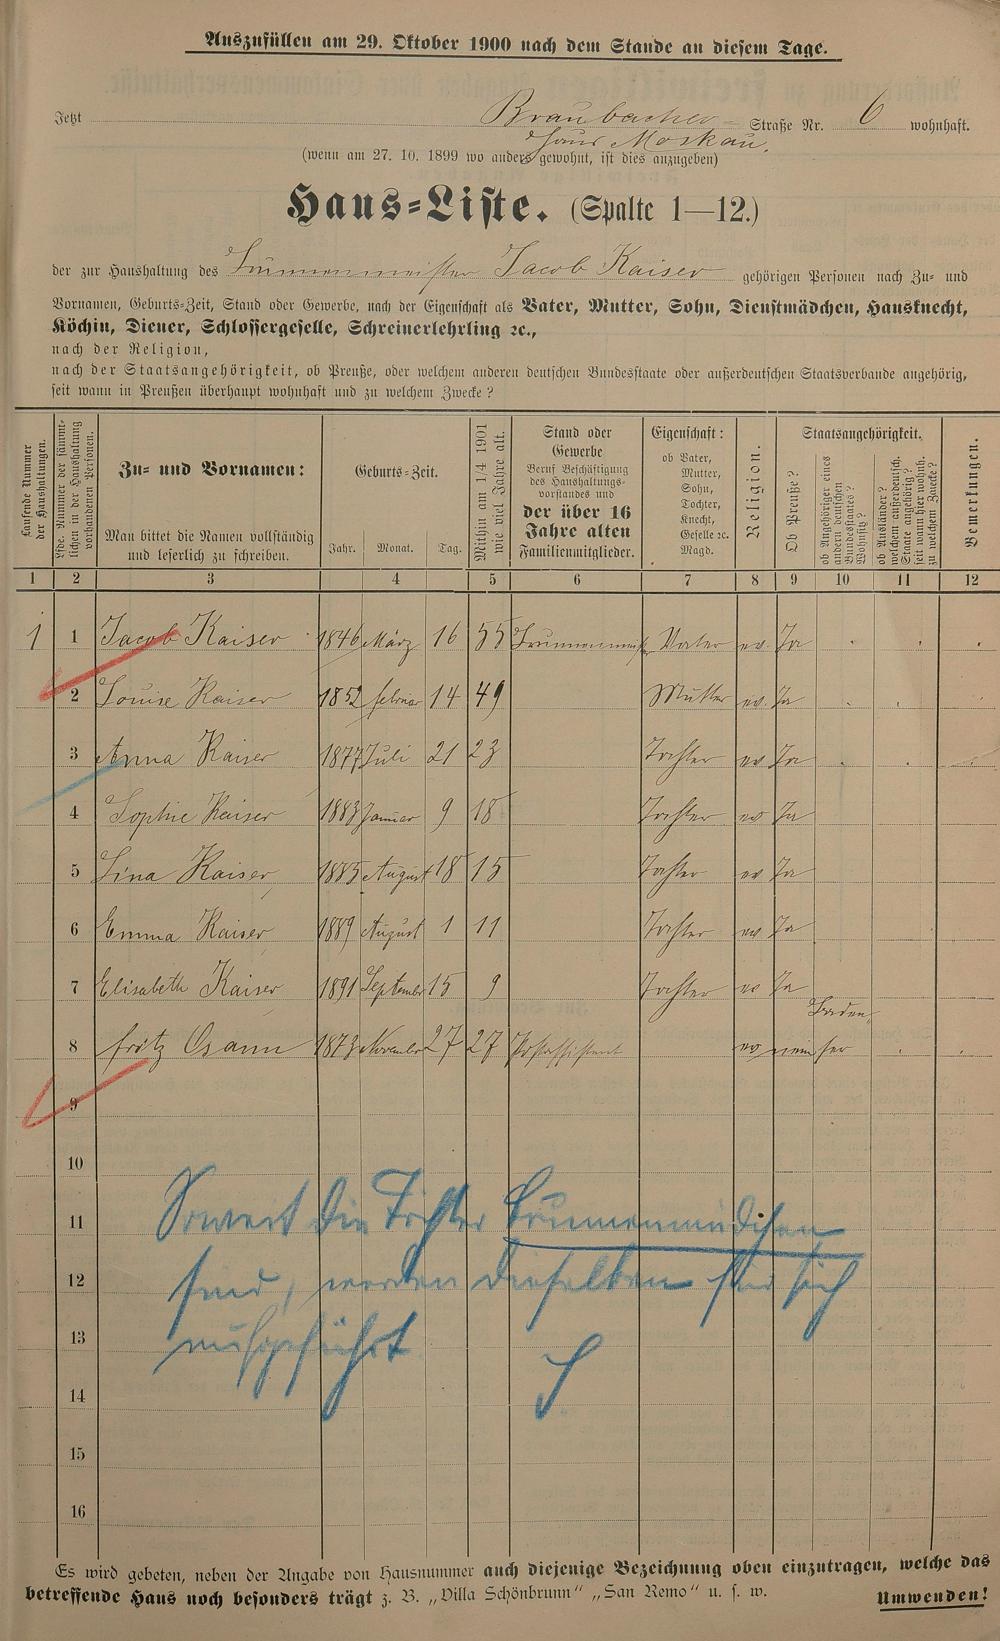 Auszufüllen am 29. Oktober 1900 nach dem Stande an diesem Tage.
Jetzt Braubacher- Straße Nr. 6 wohnhaft.
Haus Moskau.
(wenn am 27. 10. 1899 wo anders gewohnt, ist dies anzugeben)
Haus-Liste. (Spalte 1—12.)
der zur Haushaltung des Brunnenmeister Jacob Kaiser gehörigen Personen nach Zu- und
Vornamen, Geburts-Zeit, Stand oder Gewerbe, nach der Eigenschaft als Vater, Mutter, Sohn, Dienstmädchen, Hausknecht,
Köchin, Diener, Schlossergeselle, Schreinerlehrling ꝛc.,
nach der Religion,
nach der Staatsangehörigkeit, ob Preuße, oder welchem anderen deutschen Bundesstaate oder außerdeutschen Staatsverbande angehörig,
seit wann in Preußen überhaupt wohnhaft und zu welchem Zwecke?
Laufende Nummer der Haushaltungen.
Lfde. Nummer der sämmtlichen in der Haushaltung vorhandenen Personen.
Zu- und Vornamen:
Man bittet die Namen vollständig
und leserlich zu schreiben.
Geburts-Zeit.
Jahr. Monat. Tag.
Mithin am 1/4 1901 wie viel Jahre alt.
Stand oder
Gewerbe
Beruf Beschäftigung
des Haushaltungs-
vorstandes und
der über 16
Jahre alten
Familienmitglieder.
Eigenschaft:
ob Vater,
Mutter,
Sohn,
Tochter,
Knecht,
Geselle ꝛc.
Magd.
Religion.
Staatsangehörigkeit.
Ob Preuße?
ob Angehöriger eines andern deutschen Bundesstaates? Wohnsitz?
ob Ausländer? welchem außerdeutsch. Staate angehörig? seit wann hier wohnh. zu welchem Zwecke?
Bemerkungen.
1 2 3 4 5 6 7 8 9 10 11 12
1 1 Jacob Kaiser 1846 März 16 55 Brunnenmeister Vater ev. Ja
2 Louise Kaiser 1852 Februar 14 49 Mutter ev. Ja
3 Anna Kaiser 1877 Juli 21 23 Tochter ev Ja
4 Sophie Kaiser 1883 Januar 9 18 Tochter ev Ja
5 Lina Kaiser 1885 August 18 15 Tochter ev Ja
6 Emma Kaiser 1889 August 1 11 Tochter ev Ja
7 Elisabeth Kaiser 1891 September 15 9 Tochter ev Ja
8 Fritz Osann 1873 November 27 27 Postassistent ev nein Badenser
9
10
11 Soweit die Töchter Brunnenmädchen
12 sind, werden dieselben für sich
13 aufgeführt
14
15
16
Es wird gebeten, neben der Angabe von Hausnummer auch diejenige Bezeichnung oben einzutragen, welche das
betreffende Haus noch besonders trägt z. B. „Villa Schönbrunn" „San Remo" u. s. w. Umwenden!